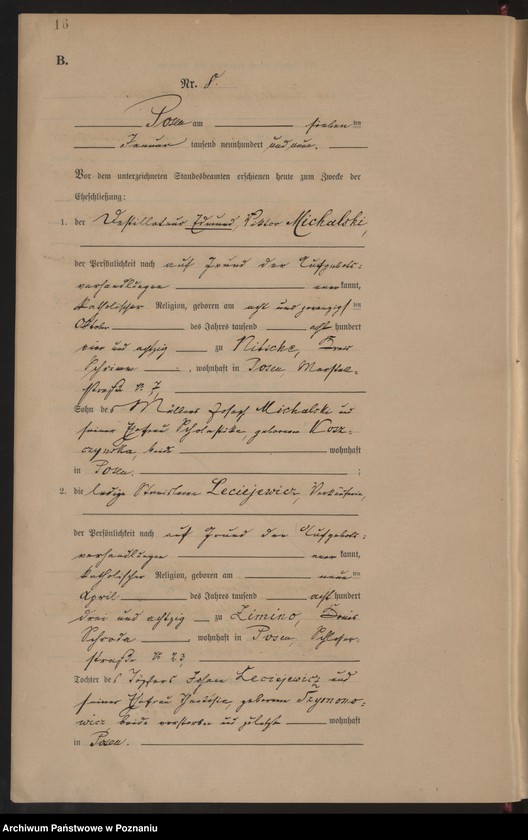 16
B.
Nr. 8.
Posen am sieben ten
Januar tausend neunhundert und neun.
Vor dem unterzeichneten Standesbeamten erschienen heute zum Zwecke der
Eheschließung:
1. der Destillateur Edmund, Viktor Michalski,
der Persönlichkeit nach auf Grund der Aufgebots-
verhandlungen aner kannt,
katholischer Religion, geboren am acht und zwanzigsten
Oktober des Jahres tausend acht hundert
vier und achtzig zu Nitsche, Kreis
Schrimm, wohnhaft in Posen,
straße № 7,
Sohn des Müllers Josef Michalski und
seiner Ehefrau Scholastika, geborenen
beide wohnhaft
in Posen. ;
2. die ledige Stanislawa Leciejewicz, Verkäuferin,
der Persönlichkeit nach auf Grund der Aufgebots-
verhandlungen aner kannt,
katholischer Religion, geboren am neun ten
April des Jahres tausend acht hundert
drei und achtzig zu Zimino, Kreis
Schroda, wohnhaft in Posen, Schlosser-
straße № 23
Tochter des Töpfers Johann Leciejewicz und
seiner Ehefrau geborenen Szymono-
wicz beide verstorben und zuletzt wohnhaft
in Posen.
Archiwum Państwowe w Poznaniu